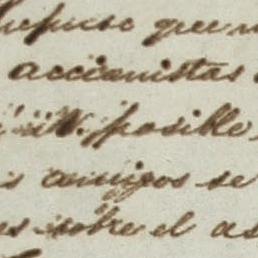 que
accionistas
posible,
amigos se
sobre el as